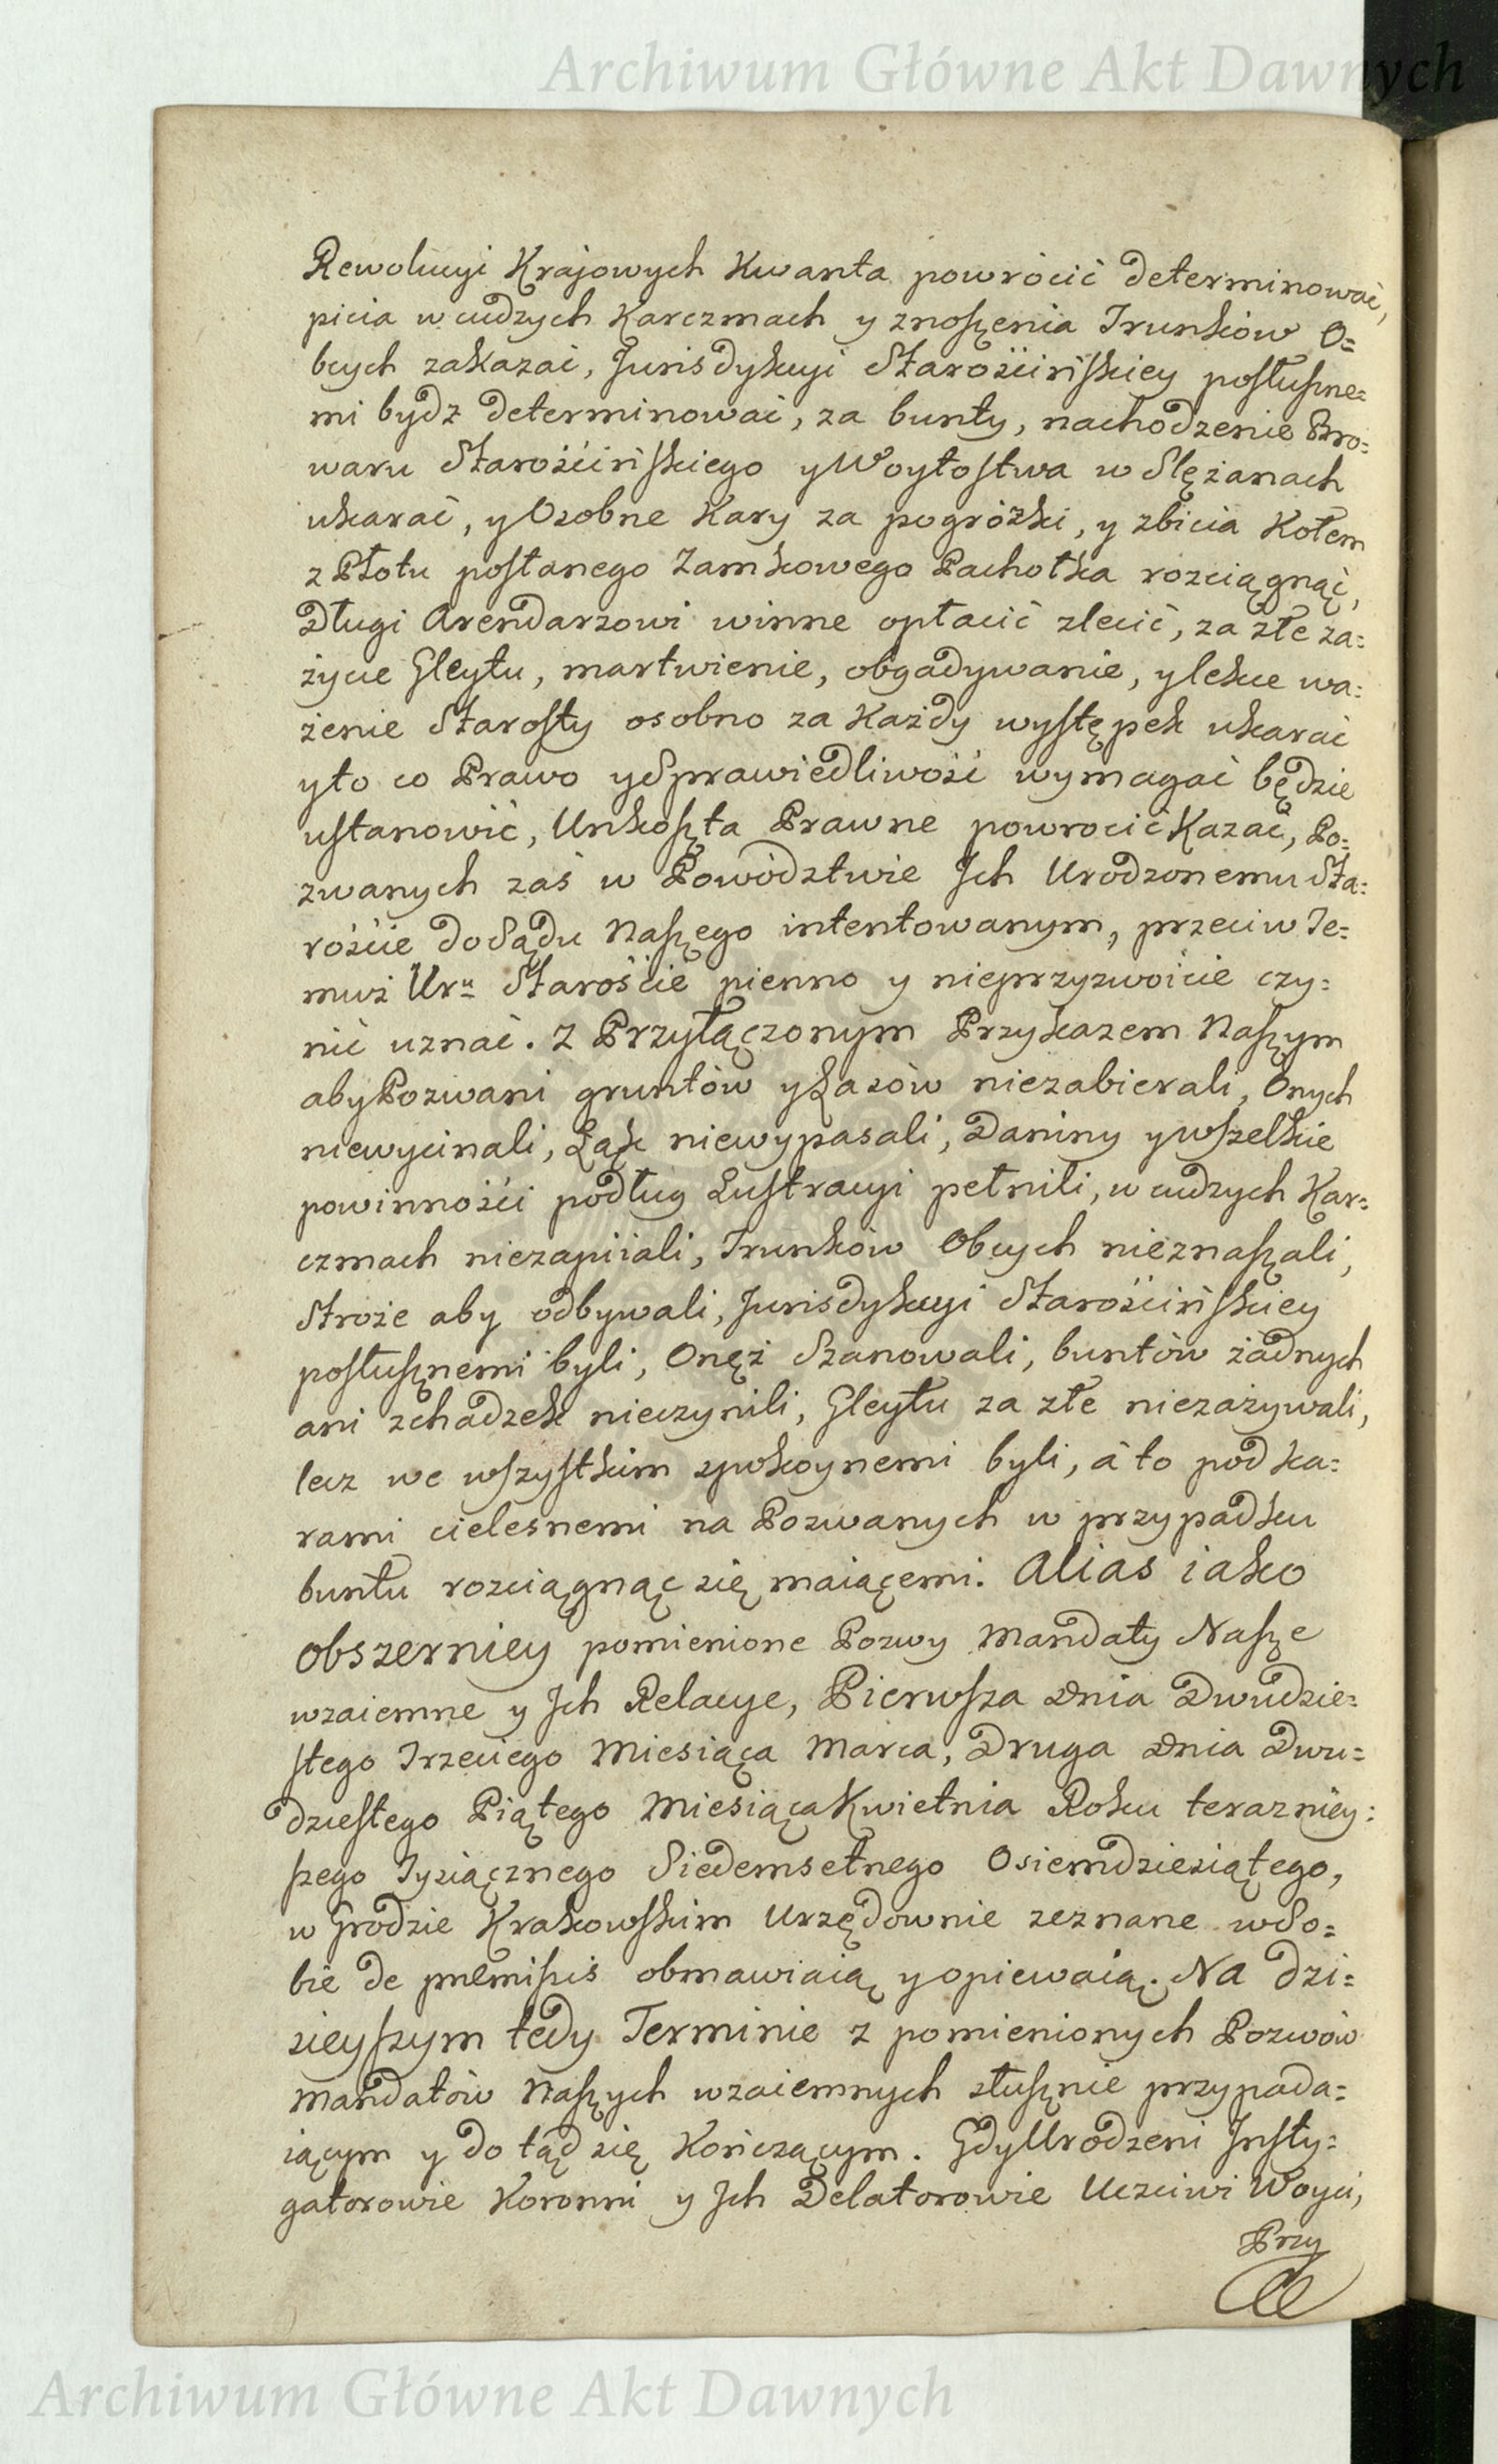 Archiwum Główne Akt Dawnych
Rewolucyi Krajowych Kwanta powrócić determinować,
picia w cudzych Karczmach y znoszenia Trunków O=
bcych zakazać, Jurisdykcyi Starościńskiey posłuszne=
mi bydz determinować, za bunty, nachodzenie Bro=
waru Starościńskiego y Woytostwa w Slężanach
ukarać, y Osobne Kary za pogróżki, y zbicia Kołem
z Płotu posłanego Zamkowego Pachołka rozciągnąć,
Długi Arendarzowi winne opłacić zlecić, za złe za=
życie Gleytu, martwienie, obgadywanie, y lekce wa=
żenie Starosty osobno za Każdy występek ukarać
y to co Prawo y Sprawiedliwość wymagać będzie
ustanowić, Unkoszta Prawne powrocić Kazać, Po=
zwanych zaś w Powództwie Jch Urodzonemu Sta=
rościе do Sądu Naszego intentowanym, przeciw Te=
muż Uru Starościе pienno y nieprzyzwoicie czy=
nić uznać. Z Przyłączonym Przykazem Naszym
aby Pozwani gruntów y Lasów niezabierali, Onych
niewycinali, Łąk niewypasali, Daniny y wszelkie
powinności podług Lustracyi pełnili, w cudzych Kar=
czmach niezapiiali, Trunków Obcych nieznaszali,
Stroże aby odbywali, Jurisdykcyi Starościńskiey
posłusznemi byli, Onęż Szanowali, buntów żadnych
ani schadzek nieczynili, Gleytu za złe niezażywali,
lecz we wszystkim spokoynemi byli, à to pod ka=
rami cielesnemi na Pozwanych w przypadku
buntu rozciągnąc się maiącemi. Alias iako
obszerniey pomienione Pozwy Mandaty Nasze
wzaiemne y Jch Relacye, Pierwsza Dnia Dwudzie=
stego Trzeciego Miesiąca Marca, Druga Dnia Dwu=
dziestego Piątego Miesiąca Kwietnia Roku terazniey=
szego Tysiącznego Siedemsetnego Osiemdziesiątego,
w Grodzie Krakowskim Urzędownie zeznane w So=
bie de præmissis obmawiaią y opiewaią. Na dzi=
sieyszym tedy Terminie z pomienionych Pozwów
Mandatów Naszych wzaiemnych słusznie przypada=
iącym y do tąd się Kończącym. Gdy Urodzeni Insty=
gatorowie Koronni y Jch Delatorowie Uczciwi Woyci,
Przy
Archiwum Główne Akt Dawnych